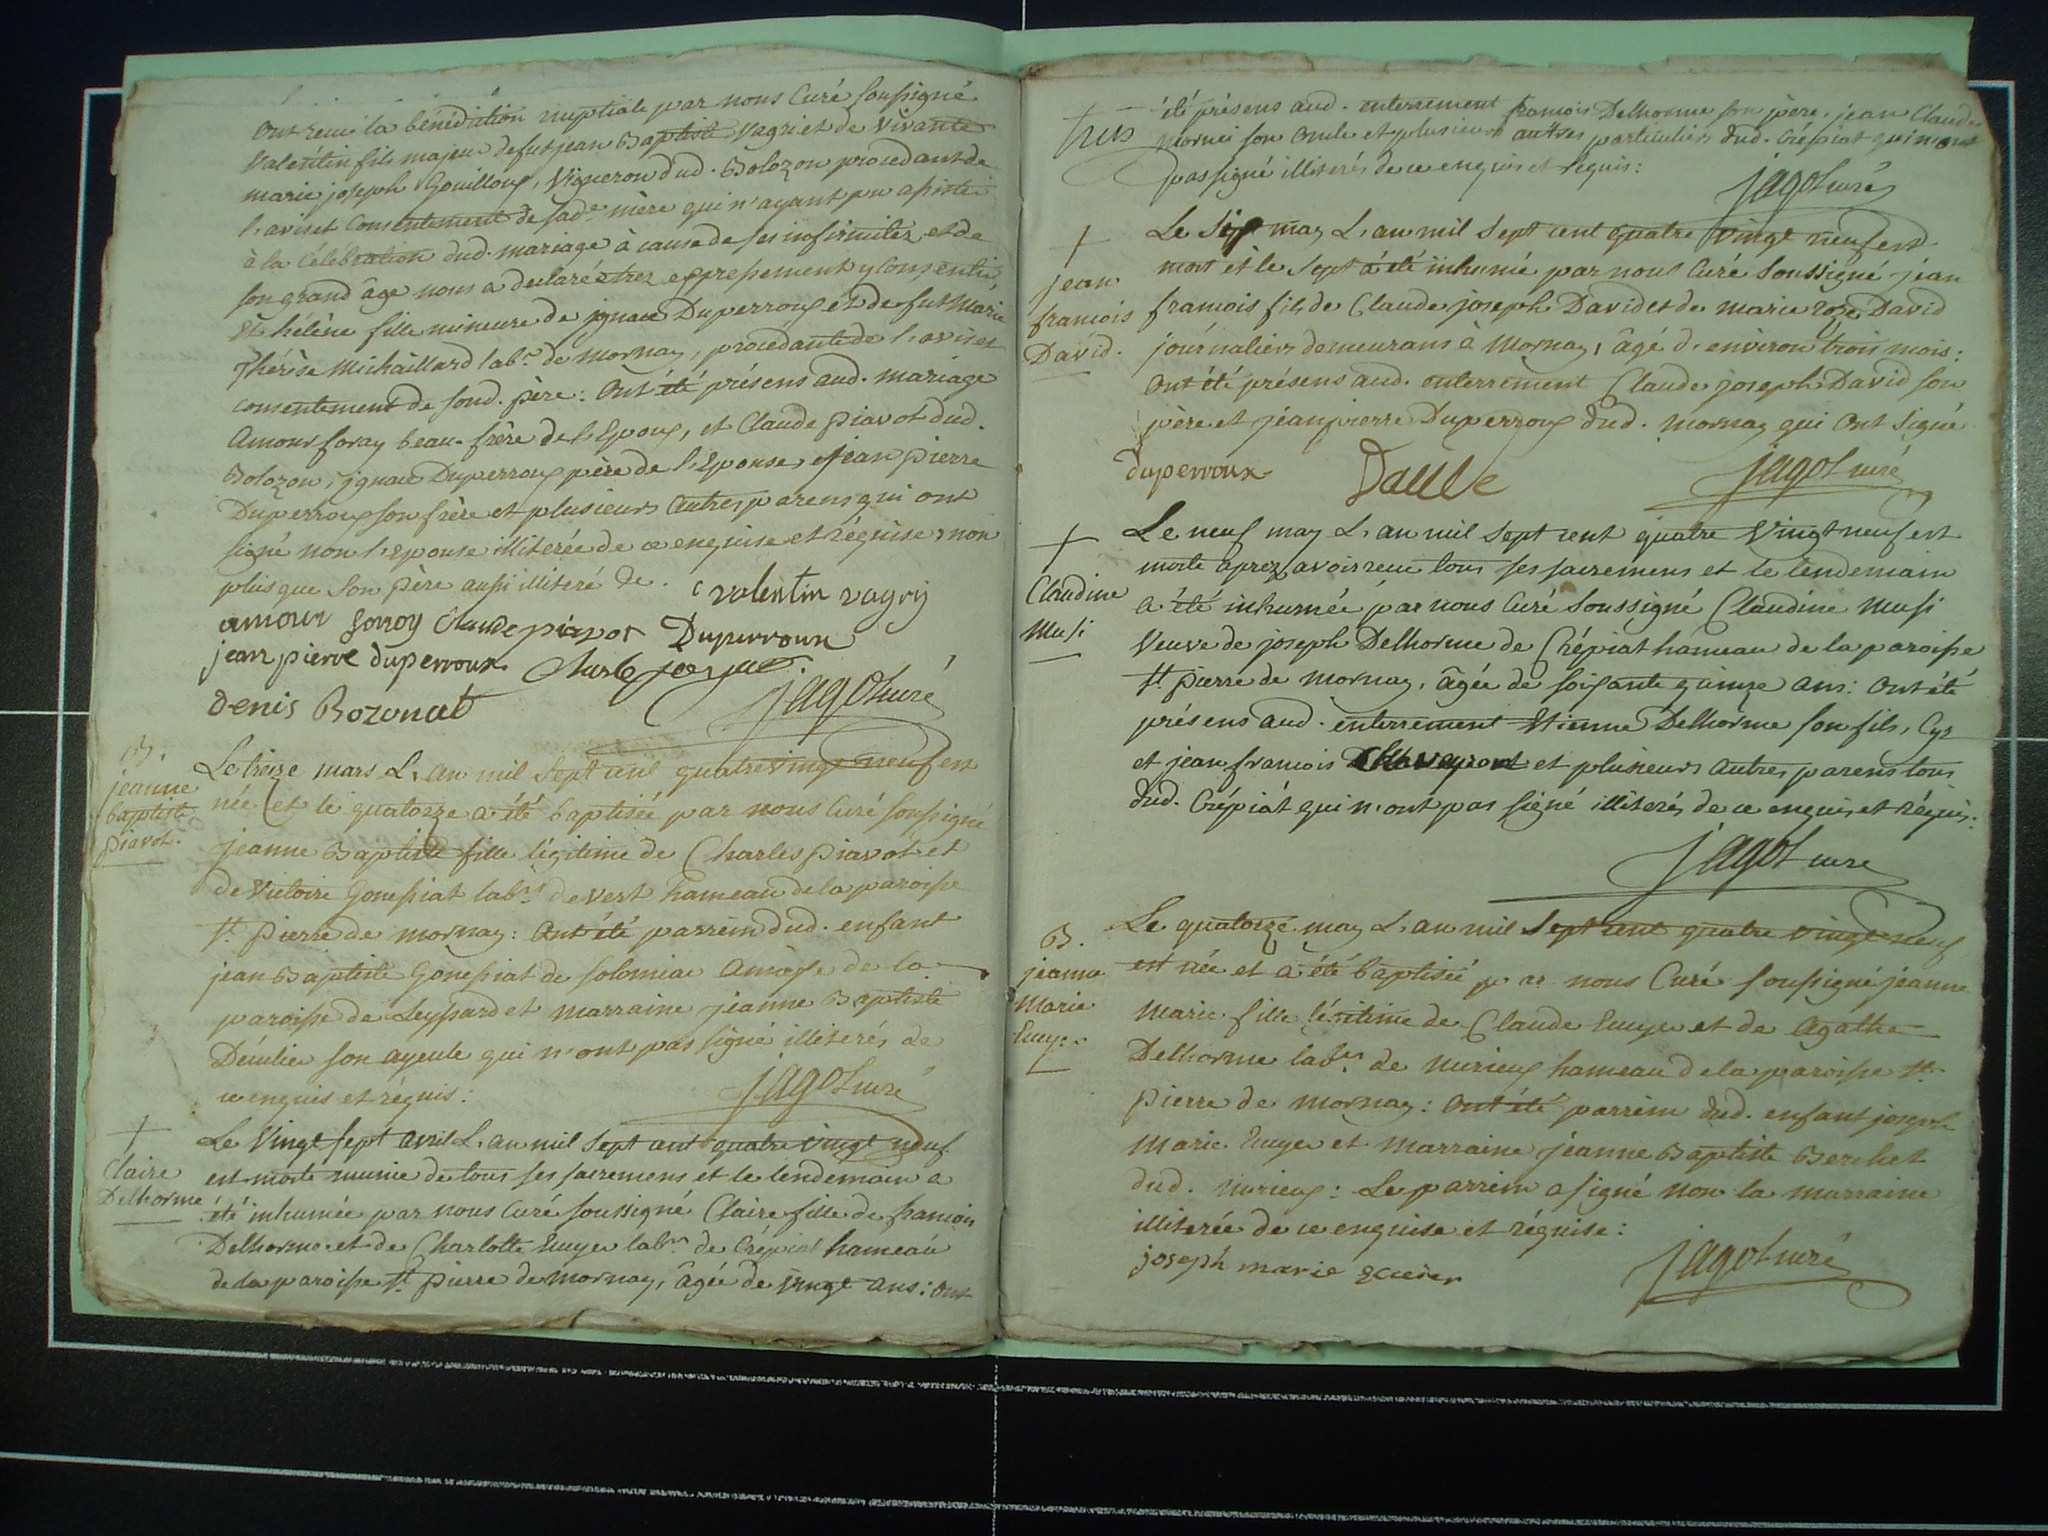 ont reçu la bénédiction nuptiale par nous Curé soussigné
Valentin fils majeur de fut jean Baptiste Vagri et de vivante
marie joseph Gouilloux, Vigneron dud. Bolozon procedant de
l'avis et Consentement de sade mère qui n'ayant pu assister
à la Célébration dud. mariage à cause de ses infirmitez et de
son grand âge nous a declaré êtrez expressement y Consentir,
Et hélène fille mineure de jgnace Duperroux et de fut Marie
Thérèse Michaillard labr. de Mornay, procedante de l'avis et
consentement de sond. père: Ont été présens aud. mariage
Amour foray beau-frère de l'Epoux, et Claude Piavot dud.
Bolozon, jgnace Duperroux père de l'Epouse, et jean pierre
Duperroux son frère et plusieurs autres parens qui ont
signé non l'Epouse illiterée de ce enquise et réquise, non
plus que son père aussi illiteré de.
valentin vagry
amour forroy Claude piavot Duperroux
jean pierre duperroux
denis Bozonat
jagot curé
B.
jeanne
baptiste
piavot.
Le treize mars L'an mil sept cent quatre vingt neuf est
née et le quatorze a été baptisée par nous Curé soussigné
jeanne Baptiste fille légitime de Charles piavot et
de Victoire Gonessiat labrs. de Vert hameau de la paroisse
St. Pierre de Mornay: Ont été parrein dud. enfant
jean Baptiste Gonessiat de Solomiac Amasse de la
paroisse de Leyssard et marraine jeanne Baptiste
son ayeule qui n'ont pas signé illiterés de
ce enquis et réquis:
jagot curé
+
Claire
Delhorme
Le Vingt sept avril L'an mil sept cent quatre vingt neuf
est morte munie de tous ses sacremens et le lendemain a
été inhumée par nous Curé soussigné Claire fille de françois
Delhorme et de Charlotte Euuye labrs. de Crépiat hameau
de la paroisse St. Pierre de Mornay, âgée de vingt ans: Ont
été présens aud. enterrement françois Delhorme son père, jean Claude
Mornei son oncle et plusieurs autres particuliers dud. Crépiat qui n'ont
pas signé illiterés de ce enquis et réquis:
jagot curé
+
jean
francois
David.
Le six may L'an mil sept cent quatre vingt neuf est
mort et le sept a été inhumé par nous Curé soussigné jean
francois fils de Claude joseph David et de marie roze David
journaliers demeurans à Mornay, âgé d'environ trois mois:
Ont été présens aud. enterrement Claude joseph David son
père et jean pierre Duperroux dud. Mornay qui ont signé
duperroux
jagot curé
+
Claudine
Musi
Le neuf may L'an mil sept cent quatre Vingt neuf est
morte aprez avoir recu tous ses sacremens et le lendemain
a été inhumée par nous Curé soussigné Claudine Musi
Veuve de joseph Delhorme de Crépiat hameau de la paroisse
St. pierre de Mornay, âgée de soixante quinze ans: Ont été
présens aud. enterrement Etienne Delhorme son fils, Cyr
et jean francois et plusieurs autres parens tous
dud. Crépiat qui n'ont pas signé illiterés de ce enquis et réquis.
jagot curé
B.
jeanne
Marie
Euuye.
Le quatorze may L'an mil sept cent quatre vingt neuf
est née et a été baptisée par nous Curé soussigné jeanne
Marie fille légitime de Claude Euuye et de Agathe
Delhorme labrs. de Nurieux hameau de la paroisse St.
Pierre de Mornay: Ont été parrein dud. enfant joseph
Marie Euuye et Marraine jeanne Baptiste Berchet
dud. Nurieux: Le parrein a signé non la marraine
illiterée de ce enquise et réquise:
joseph marie
jagot curé